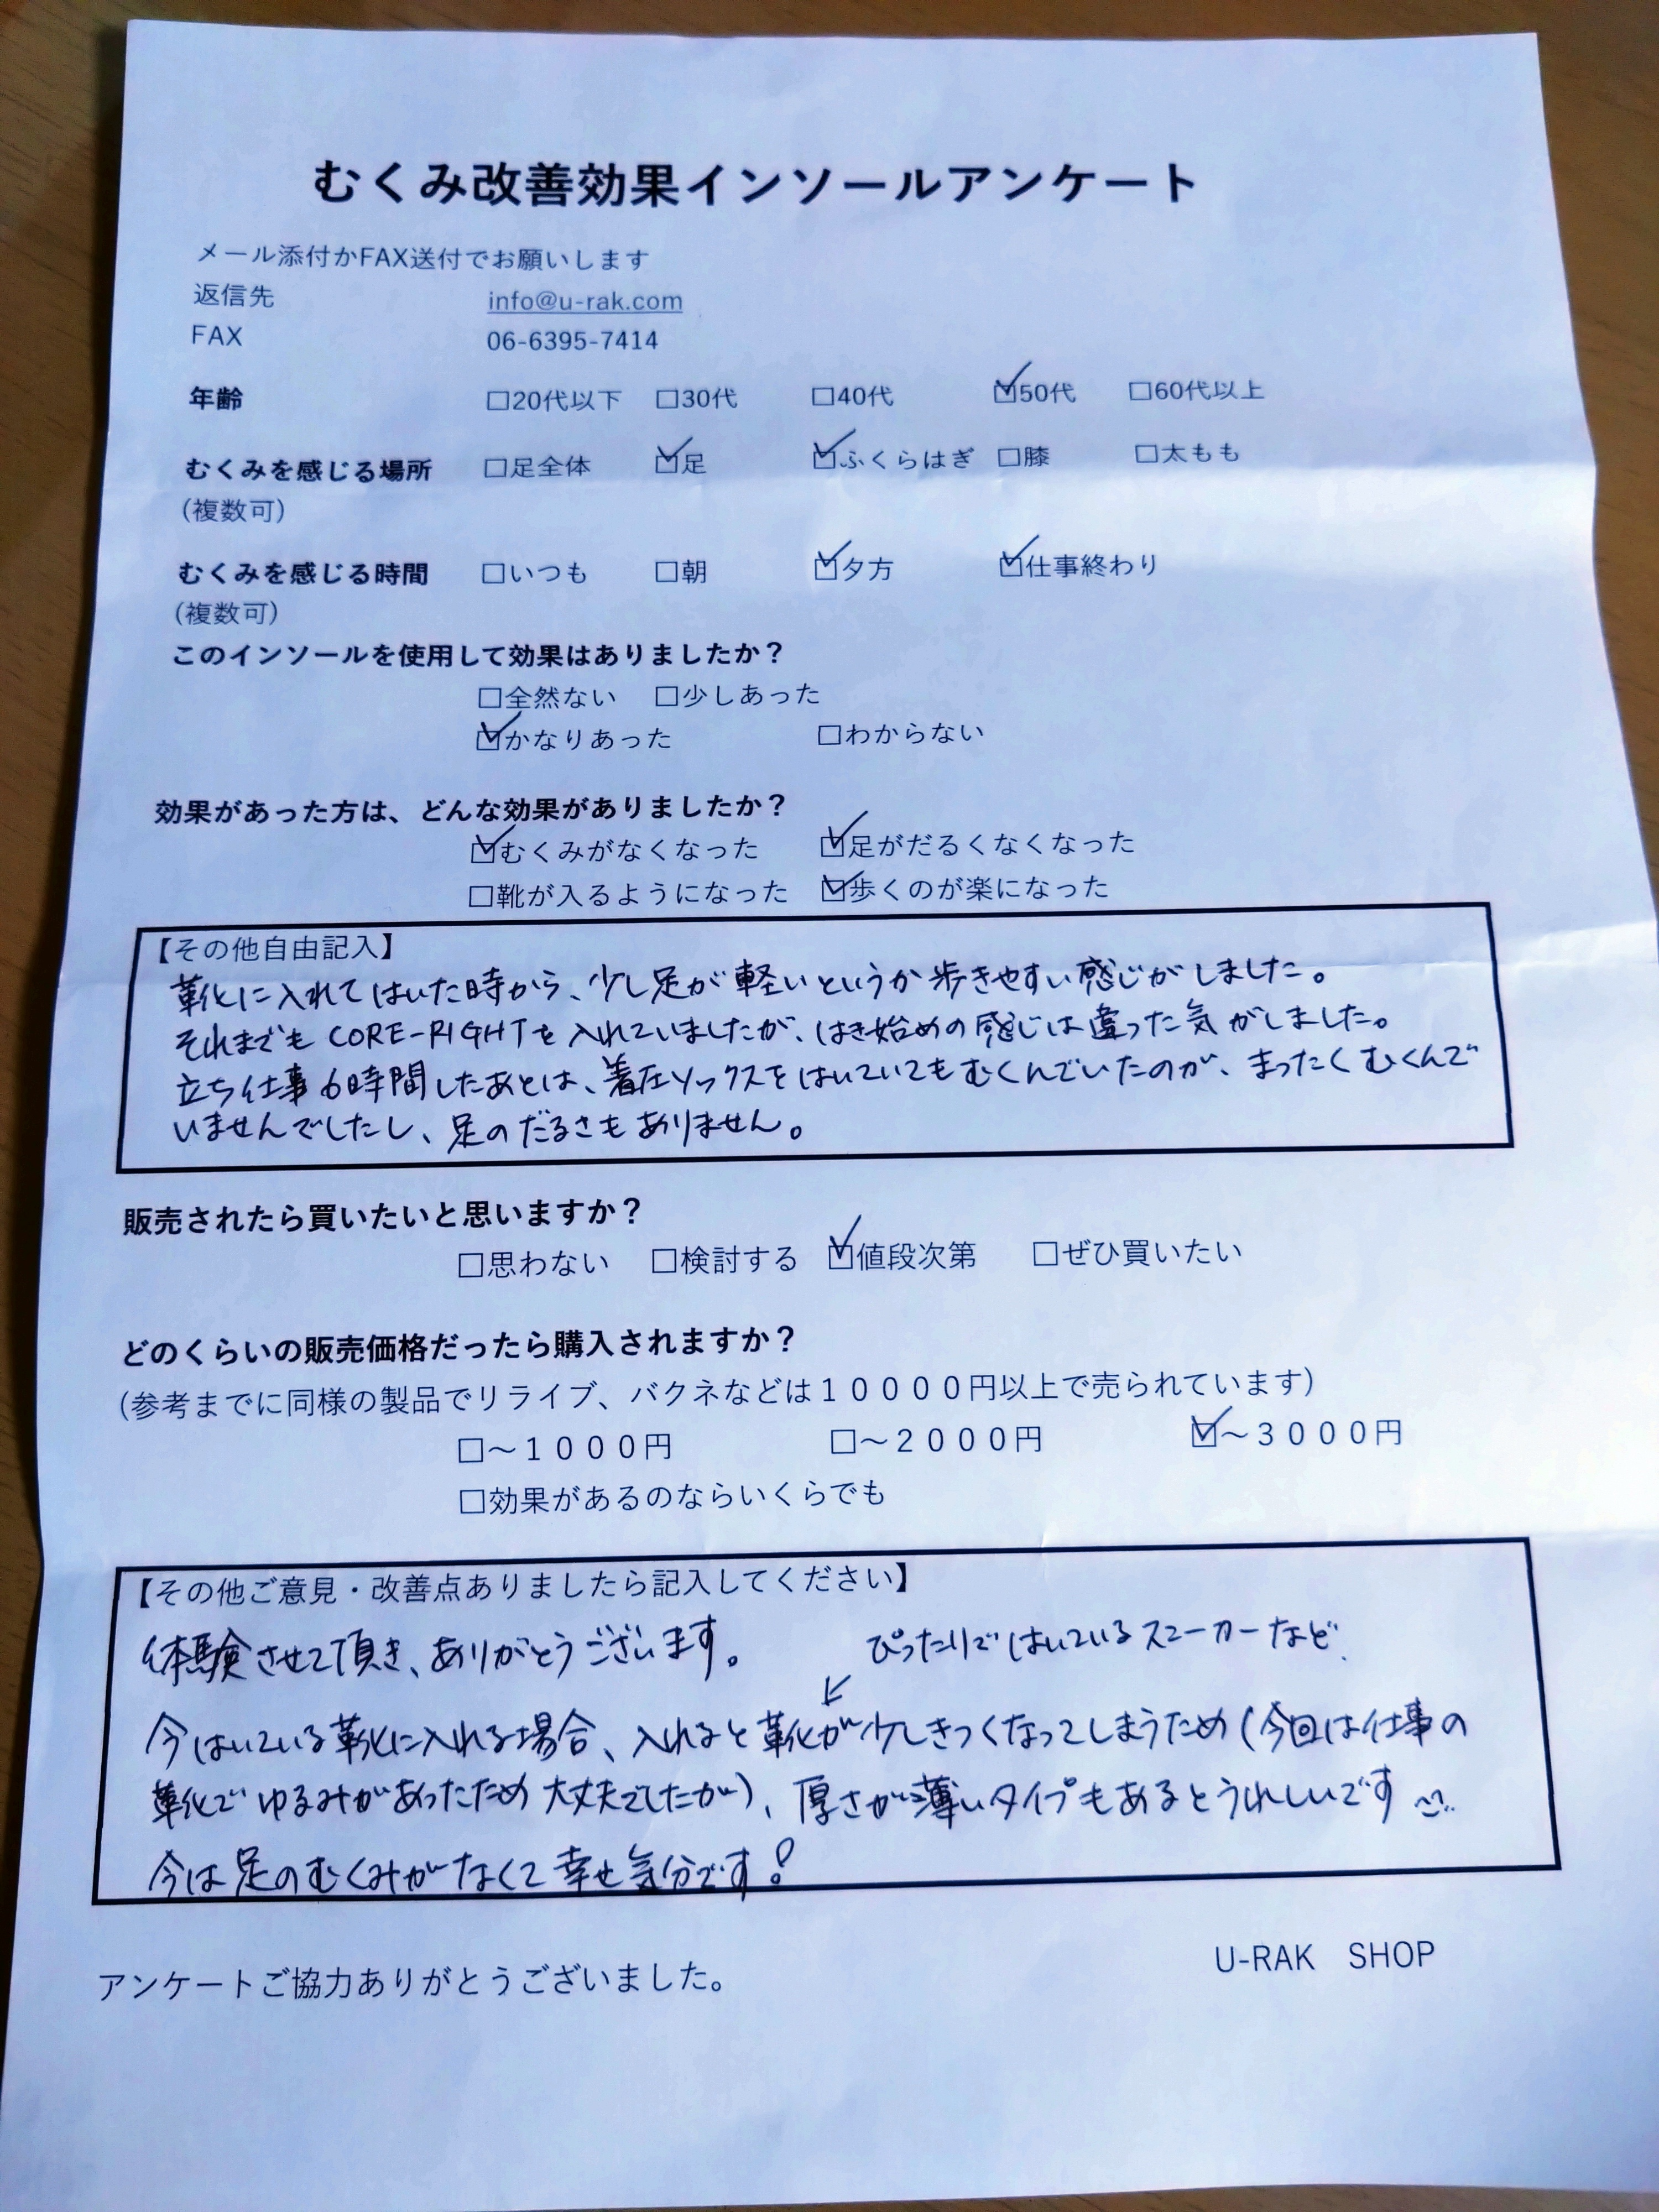 むくみ改善効果インソールアンケート
メール添付かFAX送付でお願いします
返信先 info@u-rak.com
FAX 06-6395-7414
年齢 □20代以下 □30代 □40代 ☑50代 □60代以上
むくみを感じる場所 □足全体 ☑足 ☑ふくらはぎ □膝 □太もも
(複数可)
むくみを感じる時間 □いつも □朝 ☑夕方 ☑仕事終わり
(複数可)
このインソールを使用して効果はありましたか？
□全然ない □少しあった
☑かなりあった □わからない
効果があった方は、どんな効果がありましたか？
☑むくみがなくなった ☑足がだるくなくなった
□靴が入るようになった ☑歩くのが楽になった
【その他自由記入】
靴に入れてはいた時から、少し足が軽いというか歩きやすい感じがしました。
それまでも CORE-RIGHTを入れていましたが、はき始めの感じは違った気がしました。
立ち仕事6時間したあとは、着圧ソックスをはいていてもむくんでいたのが、まったくむくんで
いませんでしたし、足のだるさもありません。
販売されたら買いたいと思いますか？
□思わない □検討する ☑値段次第 □ぜひ買いたい
どのくらいの販売価格だったら購入されますか？
(参考までに同様の製品でリライブ、バクネなどは１００００円以上で売られています)
□～１０００円 □～２０００円 ☑～３０００円
□効果があるのならいくらでも
【その他ご意見・改善点ありましたら記入してください】
体験させて頂き、ありがとうございます。 ぴったりではいているスニーカーなど
↙
今はいている靴に入れる場合、入れると靴が少しきつくなってしまうため(今回は仕事の
靴でゆるみがあったため大丈夫でしたが)、厚さが薄いタイプもあるとうれしいです
今は足のむくみがなくて幸せ気分です！
アンケートご協力ありがとうございました。 U-RAK SHOP